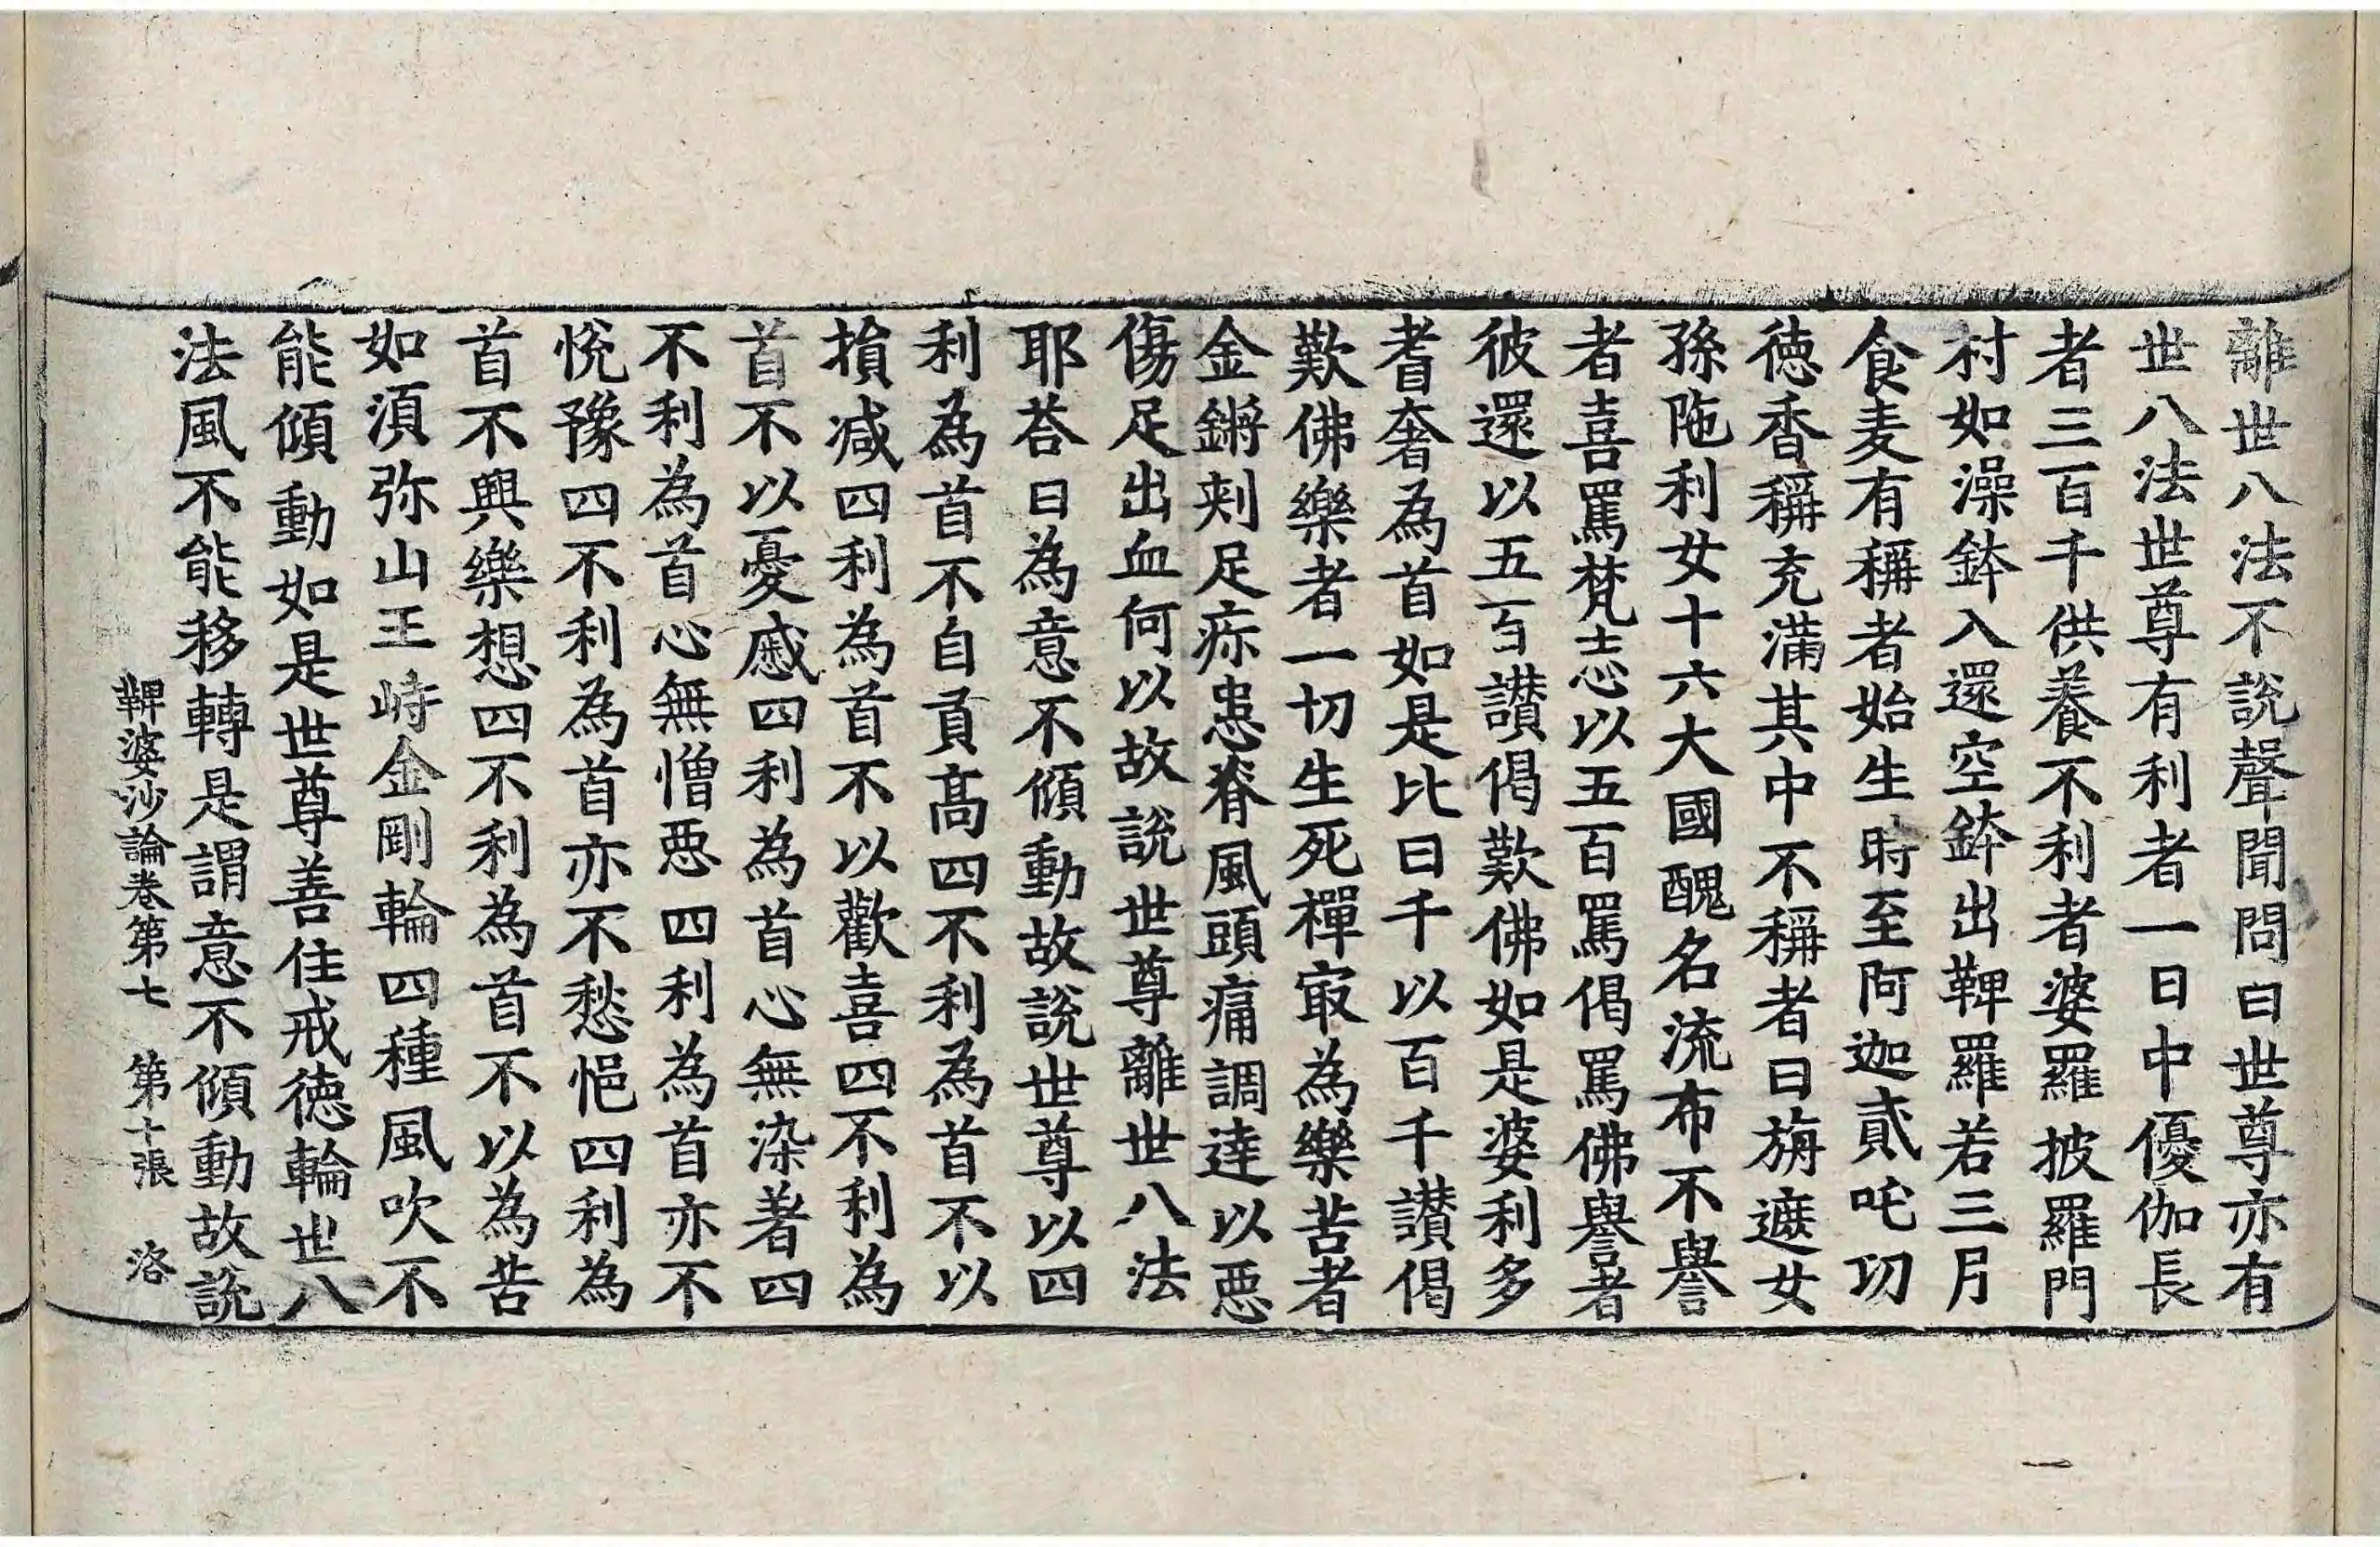 離世八法不說聲聞問曰世尊亦有
世八法世尊有利者一日中優伽長
者三百千供養不利者婆羅披羅門
村如澡鉢入還空鉢出鞞羅若三月
食麦有稱者始生時至阿迦貳吒功
徳香稱充滿其中不稱者曰旃遮女
孫陁利女十六大國醜名流布不譽
者喜罵梵志以五百罵偈罵佛譽者
彼還以五百讃偈歎佛如是婆利多
耆奢為首如是比曰千以百千讃偈
歎佛樂者一切生死禪㝡為樂苦者
金鏘刾足疢患脊風頭痛調達以惡
傷足出血何以故說世尊離世八法
耶荅曰為意不傾動故說世尊以四
利為首不自貢髙四不利為首不以
損減四利為首不以歡喜四不利為
首不以憂慼四利為首心無染著四
不利為首心無憎惡四利為首亦不
悅豫四不利為首亦不愁悒四利為
首不興樂想四不利為首不以為苦
如湏弥山王峙金剛輪四種風吹不
能傾動如是世尊善住戒徳輪世八
法風不能移轉是謂意不傾動故說
鞞婆沙論卷第七 第十張 洛